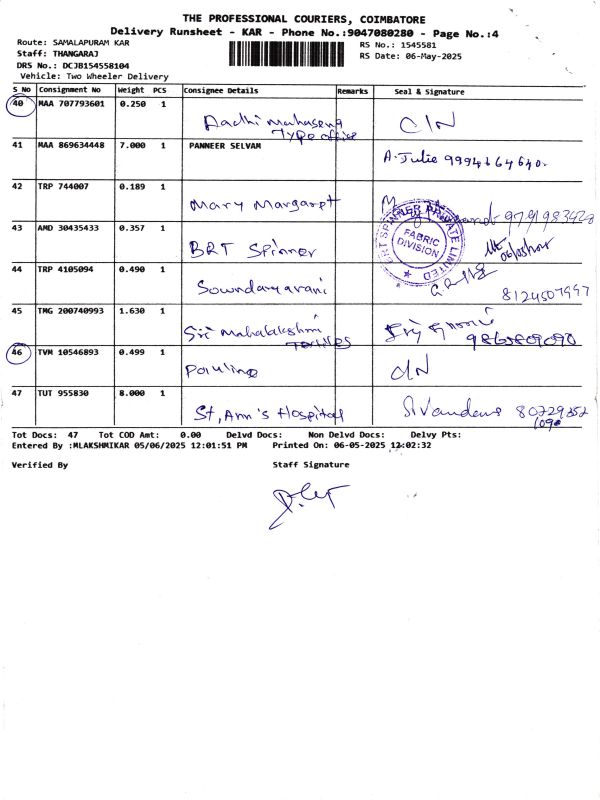 THE PROFESSIONAL COURIERS, COIMBATORE
Delivery Runsheet - KAR - Phone No.:9047080280 - Page No.:4
Route: SAMALAPURAM KAR
RS No.: 1545581
Staff: THANGARAJ
RS Date: 06-May-2025
DRS No.: DCJB154558104
Vehicle: Two Wheeler Delivery
S No Consignment No Weight PCS Consignee Details Remarks Seal & Signature
40 MAA 707793601 0.250 1 Aadhi Mahaseng Type office C/N
41 MAA 869634448 7.000 1 PANNEER SELVAM A. Julie
42 TRP 744007 0.189 1 Mary Margaret 9791983428
43 AMD 30435433 0.357 1 BRT Spinner
BRT SPINNER PRIVATE LIMITED
FABRIC DIVISION
44 TRP 4105094 0.490 1 Soundaryarani 8124507997
45 TMG 200740993 1.630 1 Sri Mahalakshmi Textiles
46 TVM 10546893 0.499 1 Pauline C/N
47 TUT 955830 8.000 1 St, Ann's Hospital
Tot Docs: 47 Tot COD Amt: 0.00 Delvd Docs: Non Delvd Docs: Delvy Pts:
Entered By :MLAKSHMIKAR 05/06/2025 12:01:51 PM Printed On: 06-05-2025 12:02:32
Verified By Staff Signature